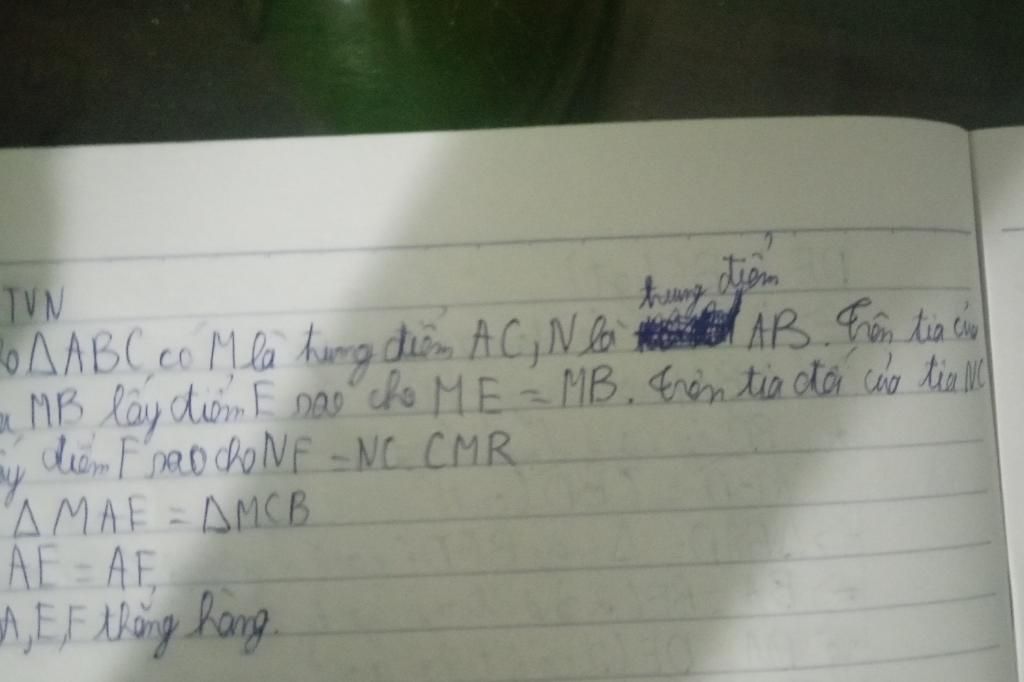 TVN
trung điểm
o ΔABC có M là trung điểm AC, N là AB. Trên tia của
MB lấy điểm E sao cho ME = MB. trên tia đối của tia NC
ấy điểm F sao cho NF = NC CMR
ΔMAE = ΔMCB
AE = AF
A, E, F thẳng hàng.